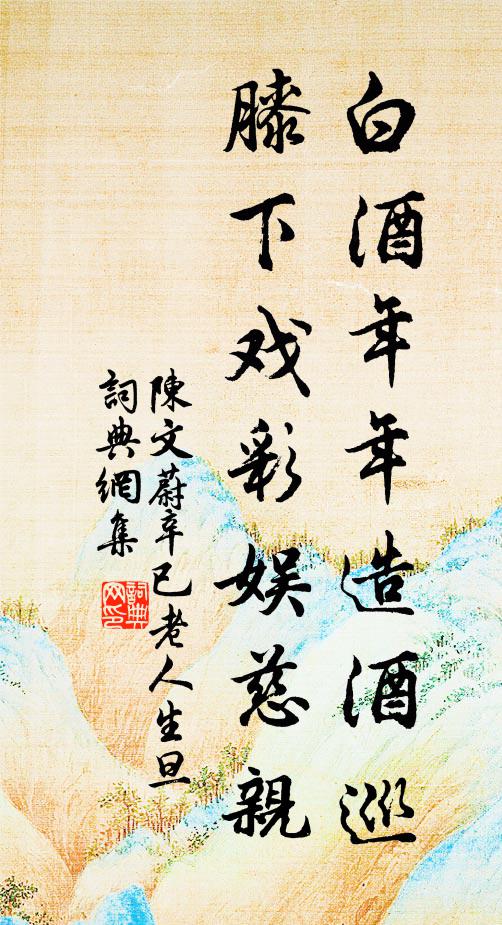 白酒年年造酒巡
膝下戏彩娱慈親
陳文蔚辛巳老人生旦
詞典網集
詞典網印